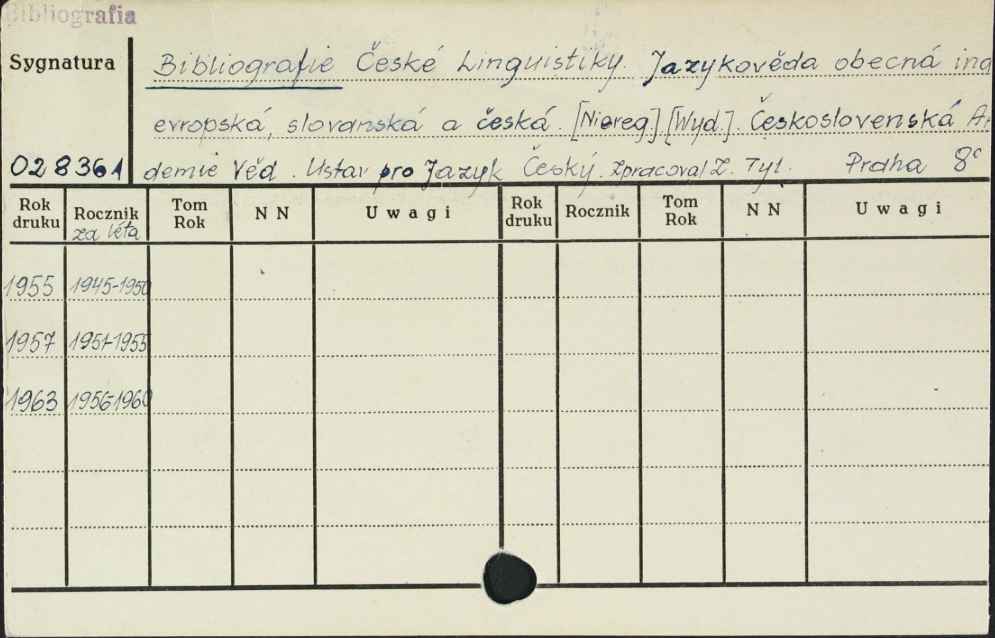 Bibliografia
Sygnatura
Bibliografie České Linguistiky. Jazykověda obecná ind
evropská, slovanská a česká. [Niereg.] [Wyd.]. Československá A
028361 demie Věd. Ustav pro Jazyk Český. Zpracoval Z. Tyl. Praha 8°
Rok druku Rocznik Tom Rok N N Uwagi Rok druku Rocznik Tom Rok N N Uwagi
za léta
1955 1945-1950
1957 1951-1955
1963 1956-1960